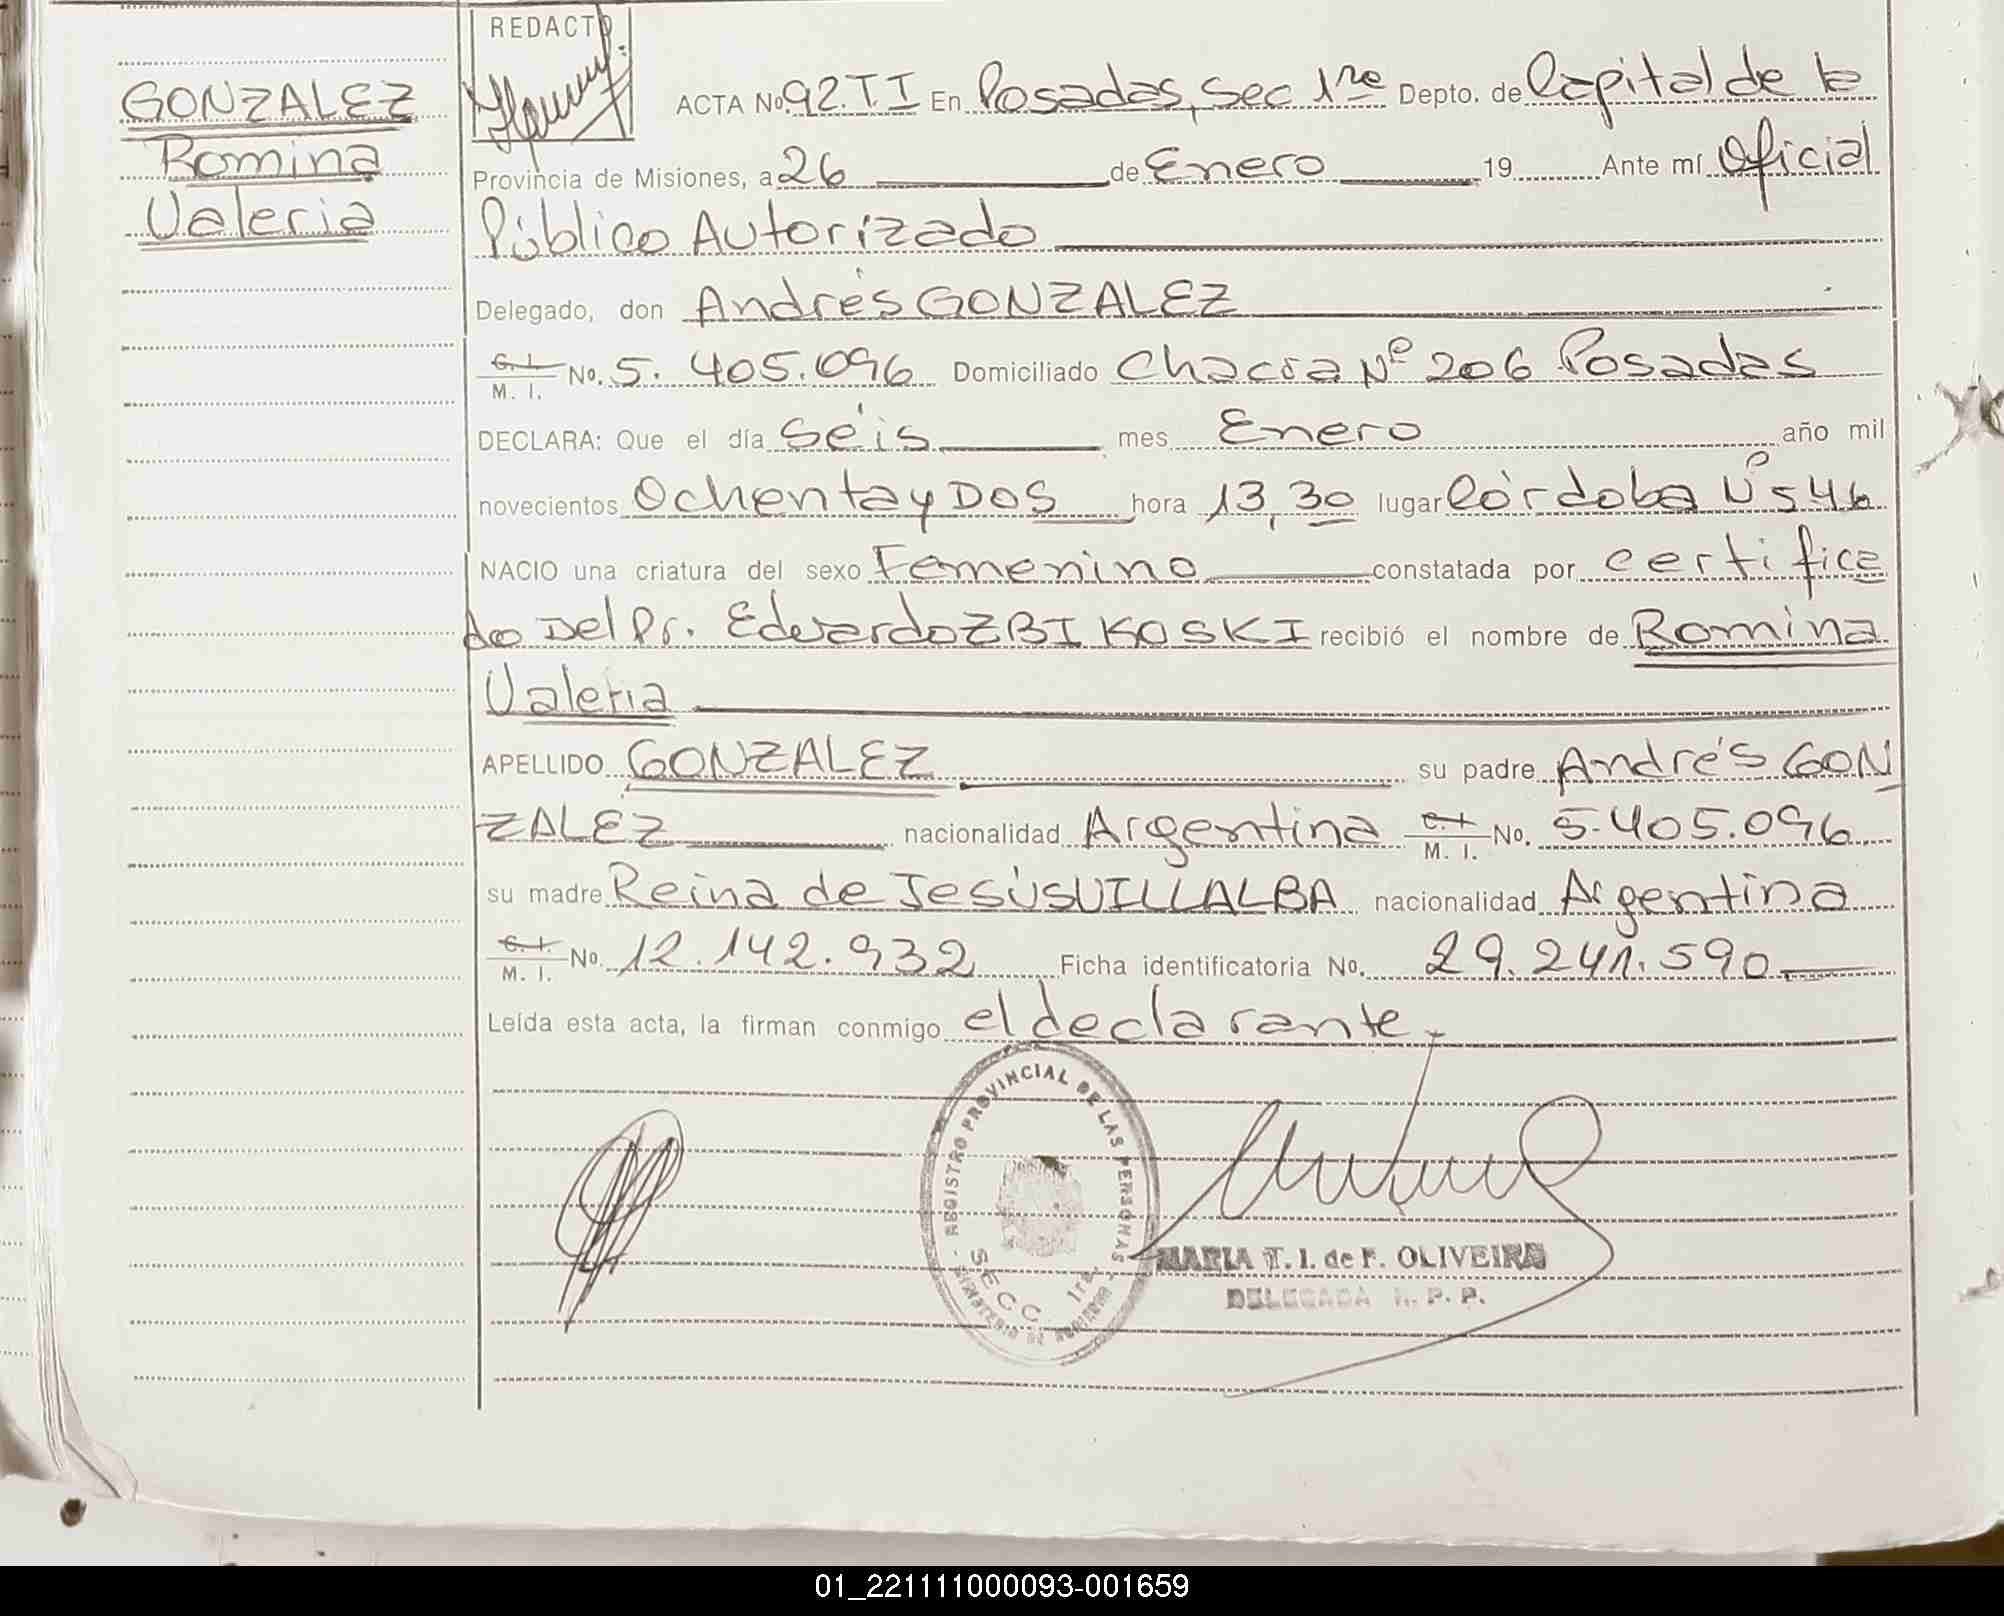 GONZALEZ
Romina
Valeria
REDACTO
ACTA No. 92.T.I En Posadas, Sec 1ra Depto. de Capital de la
Provincia de Misiones, a 26 de Enero 19 Ante mí Oficial
Público Autorizado
Delegado, don Andrés GONZALEZ
C. I. / M. I. No. 5.405.096 Domiciliado Chacra Nº 206 Posadas
DECLARA: Que el día Séis mes Enero año mil
novecientos Ochenta y DOS hora 13,30 lugar Córdoba Nº 546
NACIO una criatura del sexo Femenino constatada por certifica
do Del Dr. Eduardo ZBIKOSKI recibió el nombre de Romina
Valeria
APELLIDO GONZALEZ su padre Andrés GON
ZALEZ nacionalidad Argentina C. I. / M. I. No. 5.405.096
su madre Reina de Jesús VILLALBA nacionalidad Argentina
C. I. / M. I. No. 12.142.932 Ficha identificatoria No. 29.241.590
Leída esta acta, la firman conmigo el declarante.
REGISTRO PROVINCIAL DE LAS PERSONAS
SECC. 1ra.
MINISTERIO DE GOBIERNO
MARIA T. I. de F. OLIVEIRA
DELEGADA R. P. P.
01_221111000093-001659